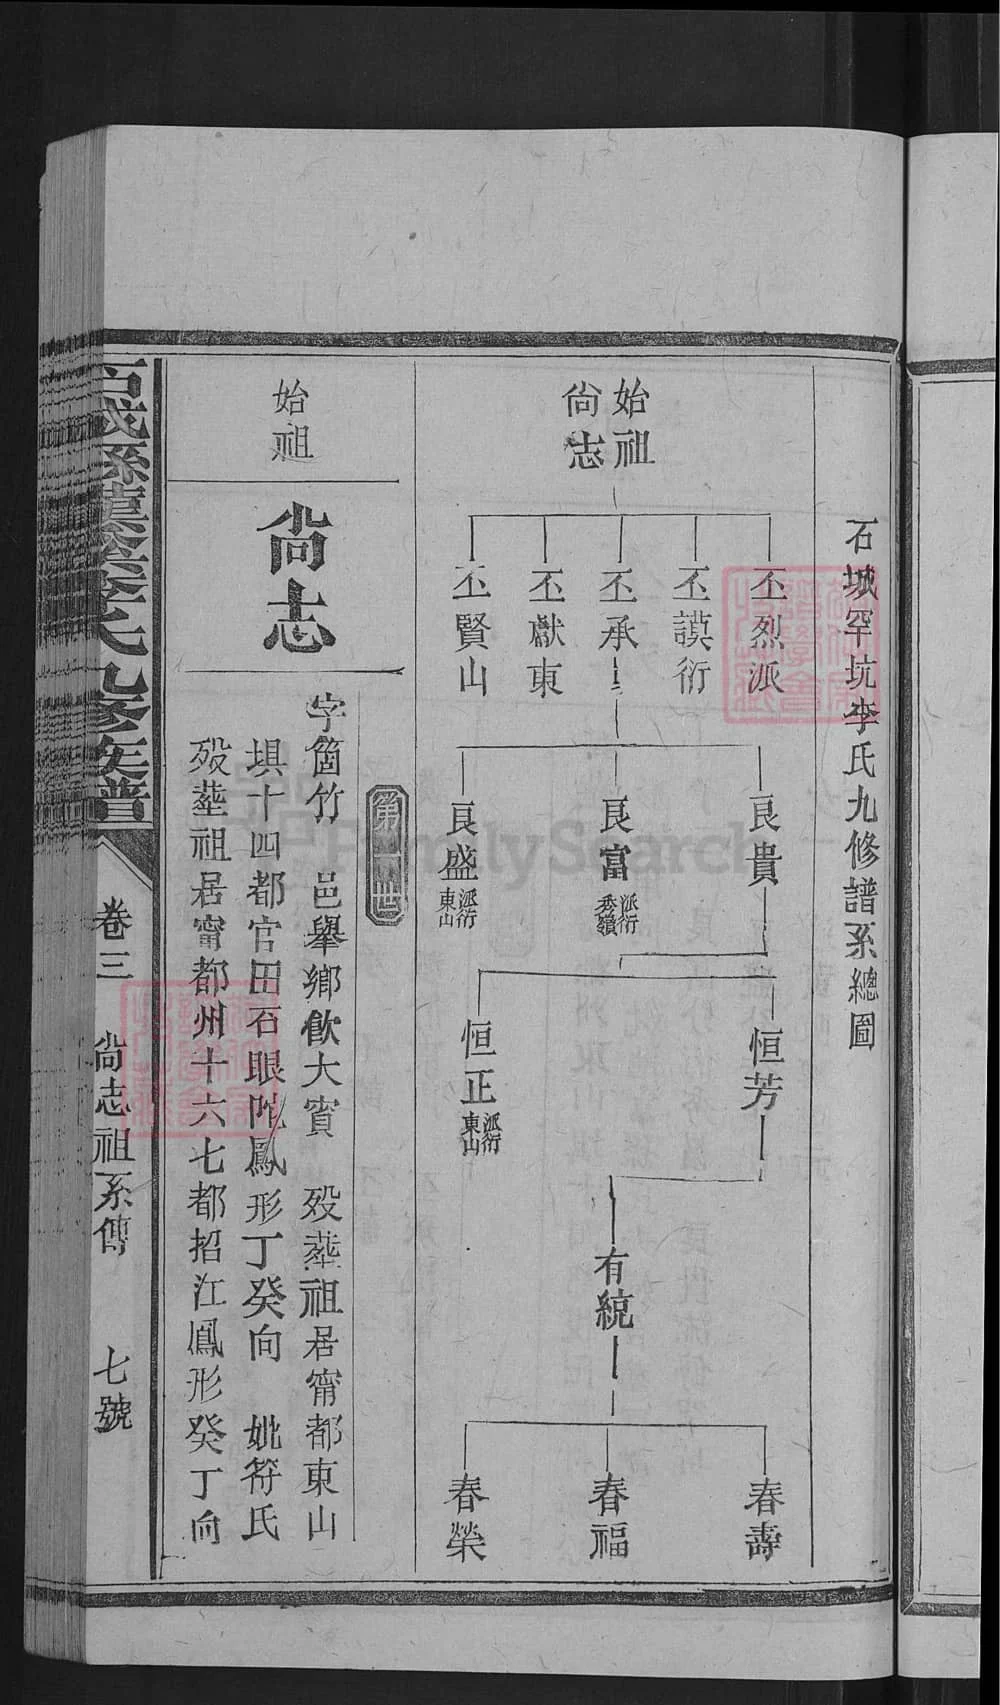 石城罕坑李氏九修譜系總圖
始祖
尙志
丕烈派
丕謨衍
丕承
丕獻東
丕賢山
良貴
良富
派衍
秀嶺
良盛
派衍
東山
恒芳
恒正
派衍
東山
有統
春壽
春福
春榮
第一世
始祖
尙志
字箇竹 邑舉鄉飲大賓 歿葬祖居甯都東山
垻十四都官田石眼陀鳳形丁癸向 妣符氏
歿葬祖居甯都州十六七都招江鳳形癸丁向
氏九修族譜
卷三 尙志祖系傳 七號
FamilySearch